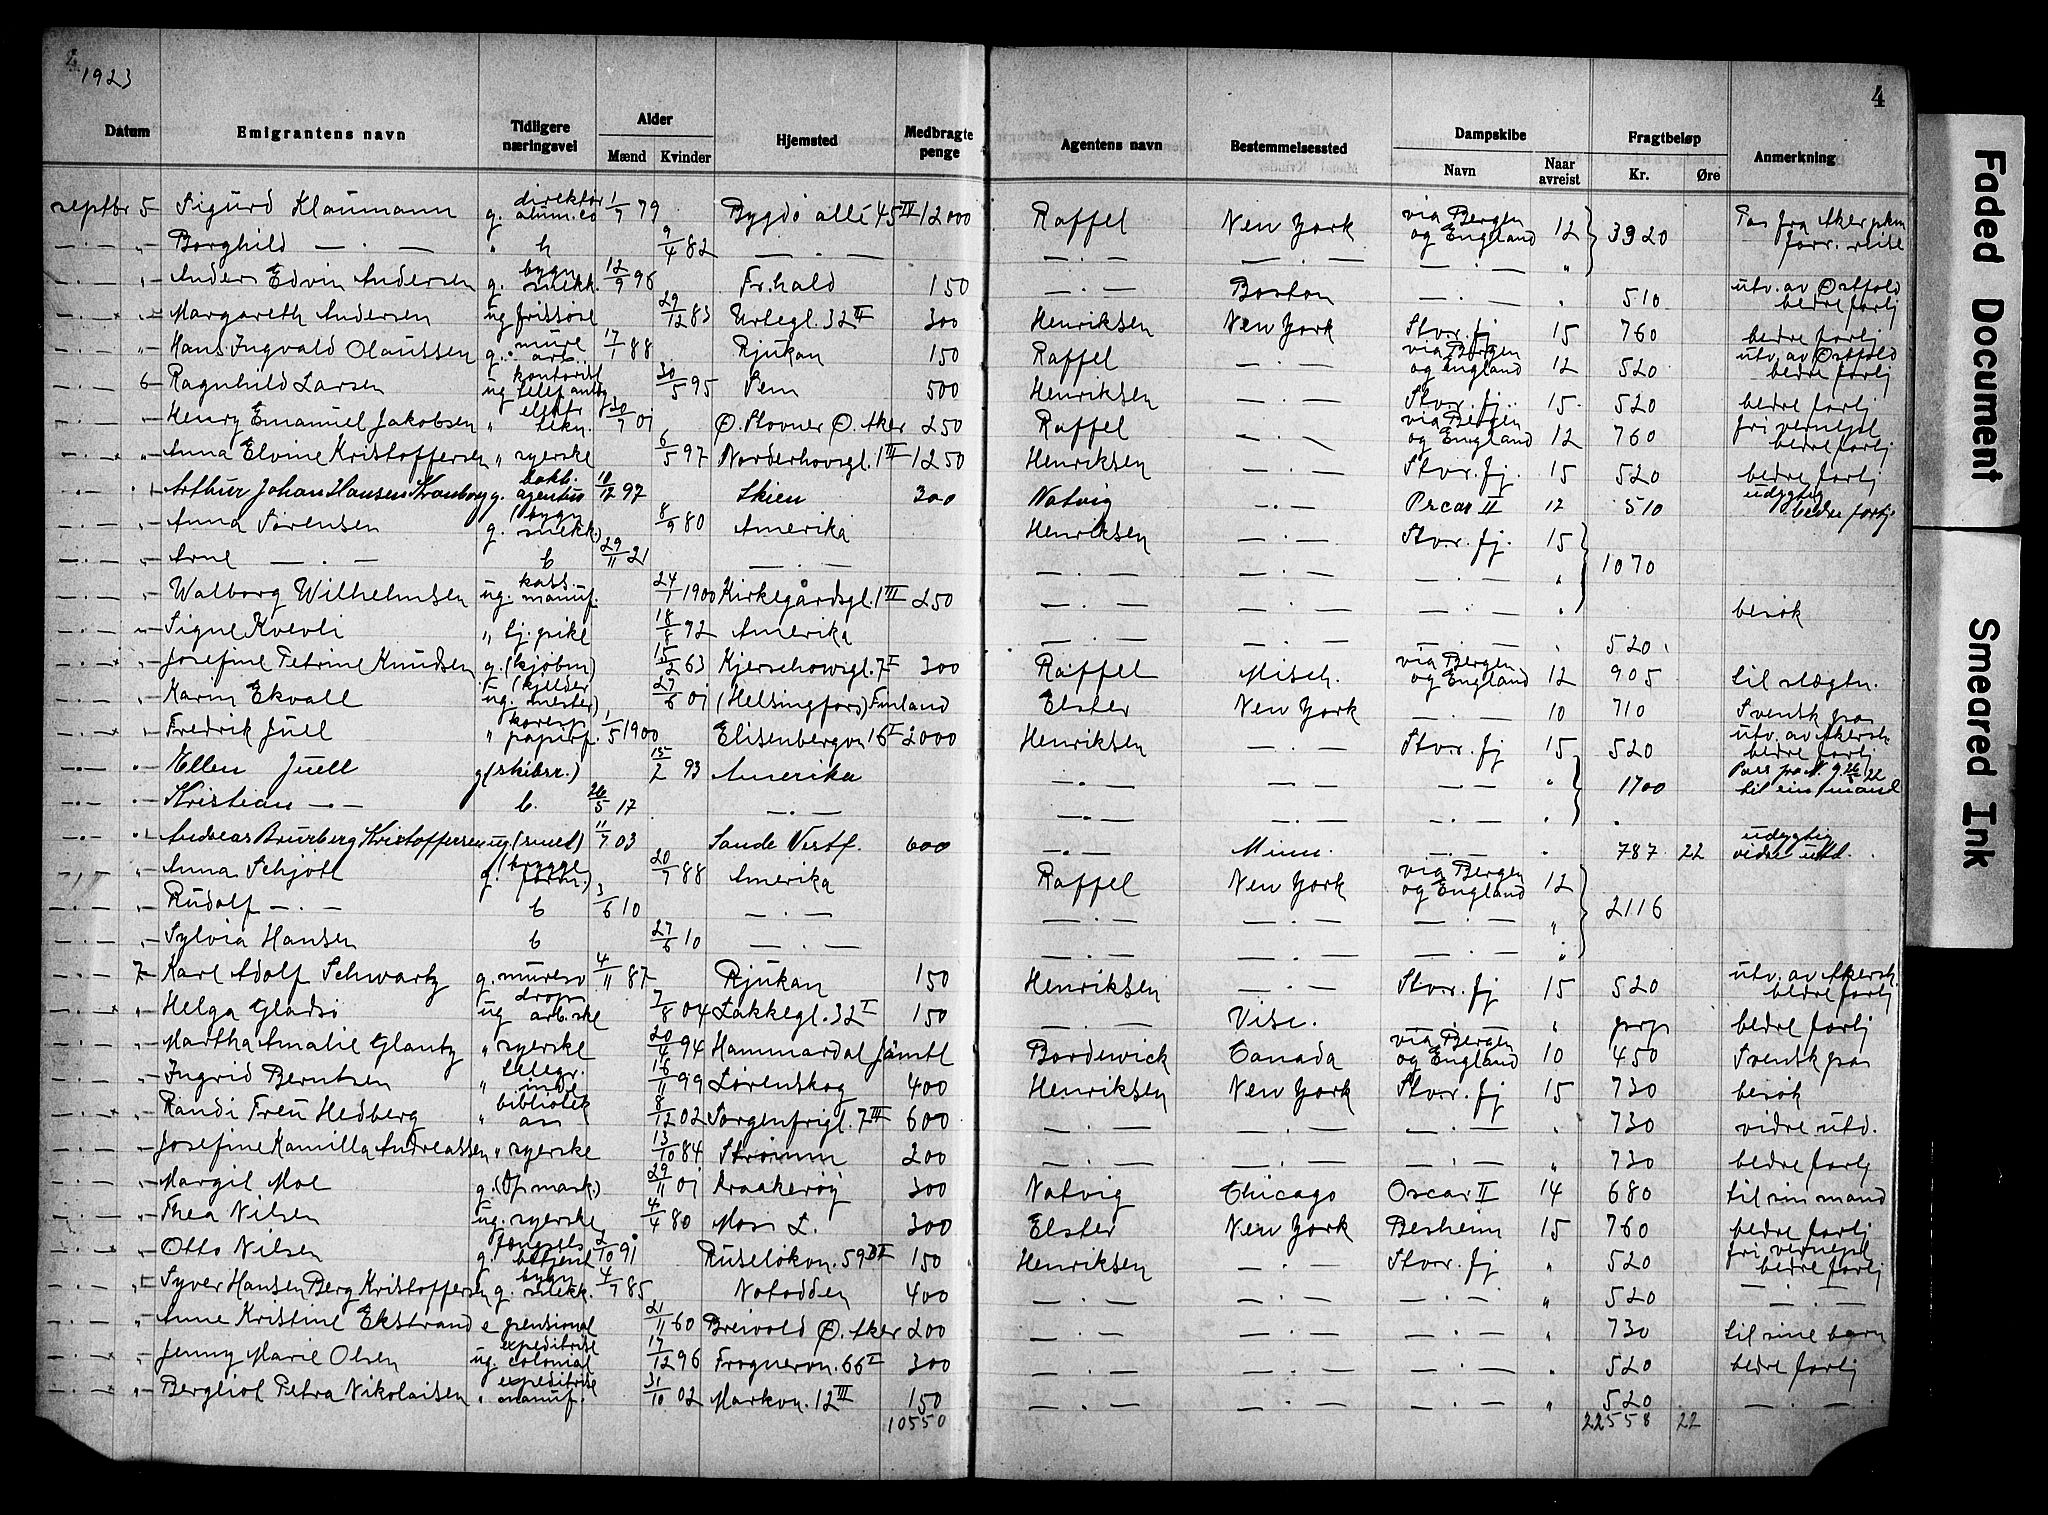 1923
4
Datum | Emigrantens navn | Tidligere næringsvei | Alder Mænd Kvinder | Hjemsted | Medbragte penge | Agentens navn | Bestemmelsessted | Dampskibe Navn | Naar avreist | Fragtbeløp Kr. Øre | Anmerkning
septbr 5 Sigurd Klaumann g. direktør alum.co 1/7 79 Bygdø allé 45 IV 12000 Raffel New York via Bergen og England 12 3920 Pas fra Aker
-.- " Borghild -.- " h 9/4 82 -.- -.- -.- -.- " forr. reise
-.- " Anders Edvin Andersen g. bygn snekk. 12/9 96 Fr.hald 150 -.- Boston -.- " 510 utv. av Østfold bedre forlj
-.- " Margareth Andersen ug frissøse 29/12 83 Urtegt. 32 II 300 Henriksen New York Stvr. fj 15 760 bedre forlj
-.- " Hans Ingvald Olaussen g. mure arb. 17/1 88 Rjukan 150 Raffel -.- via Bergen og England 12 520 utv. av Østfold bedre forlj
-.- 6 Ragnhild Larsen ug kontorist 30/5 95 Sem 500 Henriksen -.- Stvr. fj. 15 520 bedre forlj
-.- " Henry Emanuel Jakobsen " elektr tekn. 20/7 01 Ø. Stovner Ø. Aker 250 Raffel -.- via Bergen og England 12 760 fri vernepl bedre forlj
-.- " Anna Elvine Kristoffersen " syerske 6/5 97 Norderhovsgt. 1 III 1250 Henriksen -.- Stvr. fj. 15 520 bedre forlj
-.- " Arthur Johan Hansen g. agentur 10/12 97 Skien 300 Natvig -.- Oscar II 12 510 udygtig bedre forlj
-.- " Anna Sørensen g. (bygn snekk.) 8/9 80 Amerika Henriksen -.- Stvr. fj. 15
-.- " Arne -.- b 29/11 21 -.- -.- -.- -.- " 1070
-.- " Walborg Wilhelmsen ug. kass. manuf. 24/1 1900 Kirkegårdsgt. 1 III 250 -.- -.- -.- " besøk
-.- " Signe Kvevli " tj. pike 18/8 92 Amerika -.- -.- -.- " 520
-.- " Josefine Petrine Knudsen g. (kjøbm) 15/2 63 Kjerschowsgt. 7 I 300 Raffel Misch. via Bergen og England 12 905 til slægtn.
-.- " Karin Ekvall ug. (kjelder mester) 27/6 01 (Helsingfors) Finland Elster New York -.- 10 710 Svensk pas
-.- " Fredrik Juel " koresp papirf. 1/5 1900 Elisenbergvn 16 I 2000 Henriksen -.- Stvr. fj 15 520 utv. av Akersh. bedre forlj
-.- " Ellen Juell g (skibsr.) 15/2 93 Amerika -.- -.- -.- " 1700 til sin mand
-.- " Kristian -.- b. 26/5 17 -.- -.- -.- -.-
-.- " Andreas Buerberg Kristoffersen ug. (smed) 11/7 03 Sande Vestf. 600 -.- Minn. -.- " 787 22 udygtig vidre utd.
-.- " Anna Schjøtt g. (brygge form.) 20/7 88 Amerika Raffel New York via Bergen og England 12
-.- " Rudolf -.- b 3/6 10 -.- -.- -.- -.- " 2116
-.- " Sylvia Hansen b 27/6 10 -.- -.- -.- "
-.- 7 Karl Adolf Schwartz g. muresv 4/11 87 Rjukan 150 Henriksen -.- Stvr. fj 15 520 utv. av Akersh. bedre forlj
-.- " Helga Gladsø ug drops arb.ske 7/8 04 Lakkegt. 32 I 150 -.- Visc. -.- " prp bedre forlj
-.- " Martha Amalie Glantz " syerske 20/4 94 Hammardal Jämtl Bordewick Canada via Bergen og England 10 450 Svensk pas
-.- " Ingrid Berntsen " telegr. inde 16/11 99 Lørenskog 400 Henriksen New York Stvr. fj 15 730 besøk
-.- " Randi Freu Hedberg " bibliotek as 8/12 02 Sorgenfrigt. 7 III 600 -.- -.- -.- " 730 vidre utd.
-.- " Josefine Kamilla Andreassen " syerske 13/10 84 Strømm 200 -.- -.- -.- " 730 bedre forlj
-.- " Margit Moe g. (Op.mask.) 29/11 01 Kraakerøy 300 Natvig Chicago Oscar II 14 680 til sin mand
-.- " Thea Nilsen ug. syerske 4/4 80 Moss L. 300 Elster New York Besheim 15 760 bedre forlj
-.- " Otto Nilsen g. fængsels betjent 2/10 91 Ruseløkvn. 59 150 Henriksen -.- Stvr. fj " 520 fri vernepl bedre forlj
-.- " Syver Hansen Berg Kristoffersen g. bygn snekk. 4/7 85 Notodden 400 -.- -.- -.- " 520 -.-
-.- " Anne Kristine Ekstrand e pensional 21/11 60 Breivold Ø. Aker 200 -.- -.- -.- " 730 til sine barn
-.- " Jenny Marie Olsen ug. expeditrise colonial 17/12 96 Frognervn. 66 I 300 -.- -.- -.- " 520 bedre forlj
-.- " Bergliot Petra Nikolaisen " expeditrise manuf. 31/10 02 Markvn. 12 III 150 -.- -.- -.- " 520 -.-
10550 22558 22
Faded Document
Smeared Ink